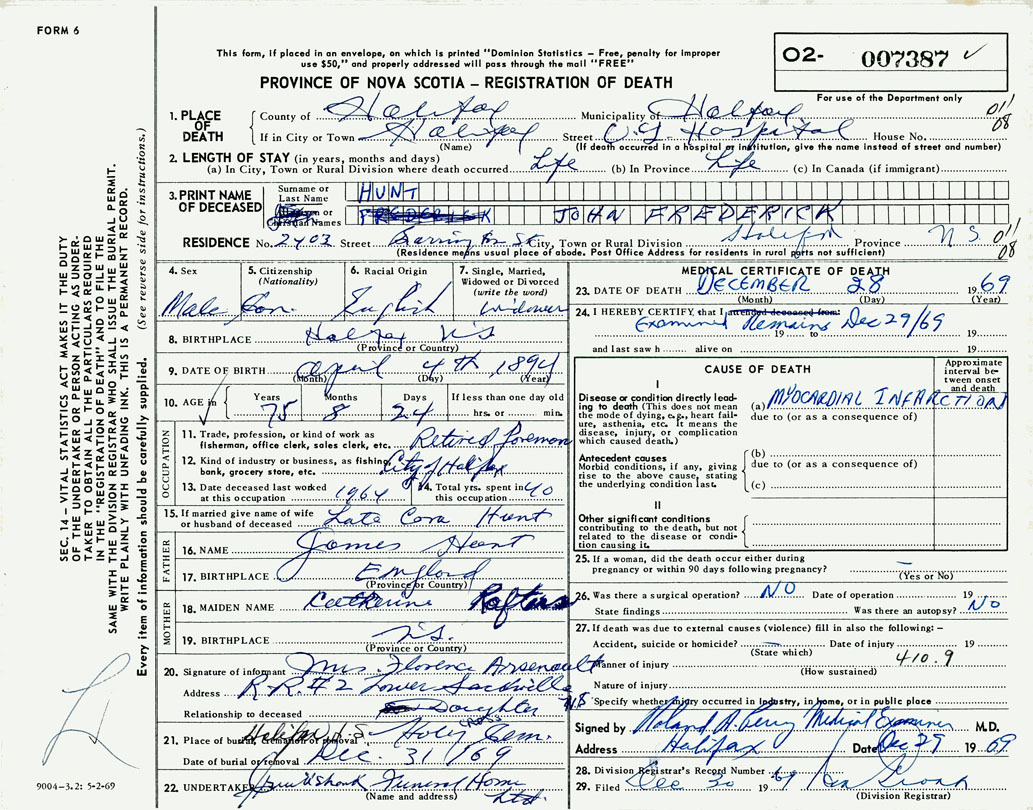 FORM 6
This form, if placed in an envelope, on which is printed "Dominion Statistics – Free, penalty for improper
use $50," and properly addressed will pass through the mail "FREE"
PROVINCE OF NOVA SCOTIA – REGISTRATION OF DEATH
O2- 007387 ✓
For use of the Department only
1. PLACE OF DEATH
County of Halifax Municipality of Halifax 011/08
If in City or Town Halifax Street V.G. Hospital House No.
(Name) (If death occurred in a hospital or institution, give the name instead of street and number)
2. LENGTH OF STAY (in years, months and days)
(a) In City, Town or Rural Division where death occurred Life (b) In Province Life (c) In Canada (if immigrant)
3. PRINT NAME OF DECEASED
Surname or Last Name HUNT
or Christian Names FREDERICK JOHN FREDERICK
RESIDENCE No. 2403 Street Barrington St City, Town or Rural Division Halifax Province N.S. 011/08
(Residence means usual place of abode. Post Office Address for residents in rural parts not sufficient)
4. Sex Male
5. Citizenship (Nationality) Can.
6. Racial Origin English
7. Single, Married, Widowed or Divorced (write the word) Widower
8. BIRTHPLACE Halifax N.S
(Province or Country)
9. DATE OF BIRTH April 4th 1894
(Month) (Day) (Year)
10. AGE in Years 75 Months 8 Days 24 If less than one day old hrs. or min.
OCCUPATION
11. Trade, profession, or kind of work as fisherman, office clerk, sales clerk, etc. Retired Foreman
12. Kind of industry or business, as fishing, bank, grocery store, etc. City of Halifax
13. Date deceased last worked at this occupation 1964
14. Total yrs. spent in this occupation 40
15. If married give name of wife or husband of deceased Late Cora Hunt
FATHER
16. NAME James Hunt
17. BIRTHPLACE England
(Province or Country)
MOTHER
18. MAIDEN NAME Catherine Rafters
19. BIRTHPLACE N.S.
(Province or Country)
20. Signature of informant Mrs. Florence Arsenault
Address R.R.#2 Lower Sackville N.S
Relationship to deceased Daughter
21. Place of burial, cremation or removal Halifax N.S. Holy Cross Cem.
Date of burial or removal Dec. 31/69
22. UNDERTAKER Funeral Home Ltd.
(Name and address)
MEDICAL CERTIFICATE OF DEATH
23. DATE OF DEATH DECEMBER 28 1969
(Month) (Day) (Year)
24. I HEREBY CERTIFY, that I attended deceased from:
Examined Remains Dec 29/69
19 to 19
and last saw h alive on 19
CAUSE OF DEATH
Approximate interval between onset and death
I
Disease or condition directly leading to death (This does not mean the mode of dying, e.g., heart failure, asthenia, etc. It means the disease, injury, or complication which caused death.)
(a) MYOCARDIAL INFARCTION
due to (or as a consequence of)
Antecedent causes
Morbid conditions, if any, giving rise to the above cause, stating the underlying condition last.
(b)
due to (or as a consequence of)
(c)
II
Other significant conditions
contributing to the death, but not related to the disease or condition causing it.
25. If a woman, did the death occur either during
pregnancy or within 90 days following pregnancy? –
(Yes or No)
26. Was there a surgical operation? NO Date of operation 19
State findings Was there an autopsy? NO
27. If death was due to external causes (violence) fill in also the following: –
Accident, suicide or homicide? Date of injury 19
(State which)
Manner of injury 410.9
(How sustained)
Nature of injury
Specify whether injury occurred in industry, in home, or in public place
Signed by Roland A. Perry Medical Examiner M.D.
Address Halifax Date Dec 29 1969
28. Division Registrar's Record Number
29. Filed Dec 30 1969
(Division Registrar)
SEC. 14 – VITAL STATISTICS ACT MAKES IT THE DUTY
OF THE UNDERTAKER OR PERSON ACTING AS UNDER-
TAKER TO OBTAIN ALL THE PARTICULARS REQUIRED
IN THE "REGISTRATION OF DEATH" AND TO FILE THE
SAME WITH THE DIVISION REGISTRAR WHO SHALL ISSUE THE BURIAL PERMIT.
WRITE PLAINLY WITH UNFADING INK. THIS IS A PERMANENT RECORD.
Every item of information should be carefully supplied. (See reverse side for instructions.)
9004-3.2: 5-2-69